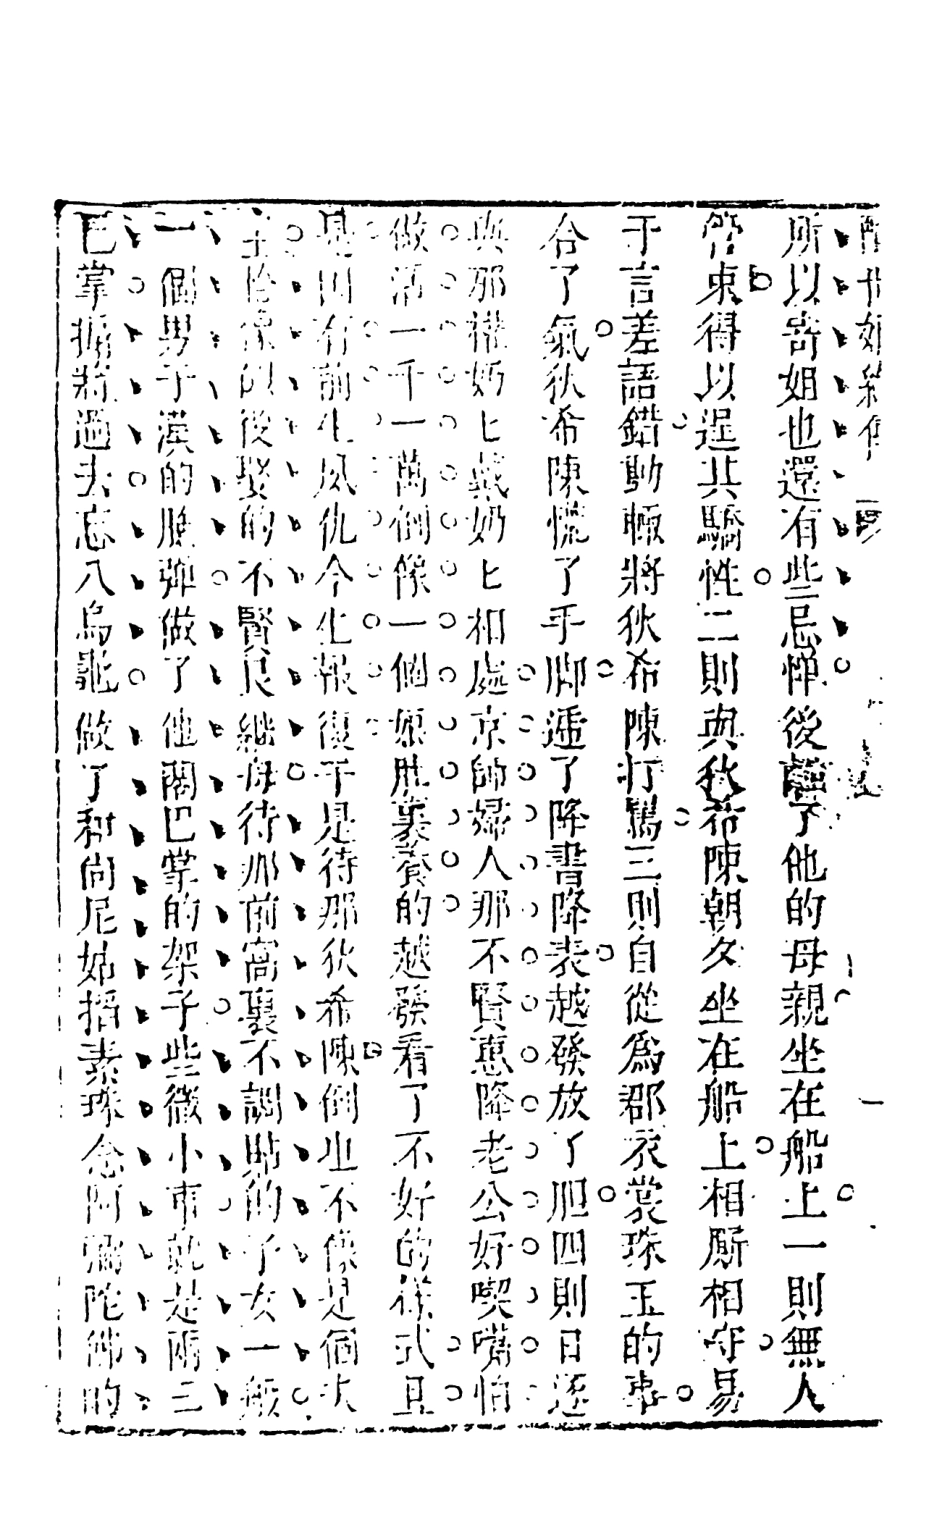 醒世姻緣傳
所以寄姐也還有些忌憚後離了他的母親坐在船上一則無人
管束得以逞其驕性二則與狄希陳朝夕坐在船上相厮相守易
于言差語錯動輒將狄希陳打罵三則自從爲那衣裳珠玉的事
合了氣狄希陳慌了手脚遞了降書降表越發放了胆四則日逐
與那權奶匕戴奶匕相處京師婦人那不賢惠降老公好喫嘴怕
做活一千一萬倒像一個娘肚裏養的越發看了不好的樣式且
是因有前生夙仇今生報復于是待那狄希陳倒也不像是個丈
主倫像似後娶的不賢良繼母待那前窩裏不調貼的子女一般
一個男子漢的臉彈做了他閣巴掌的架子些微小事就是兩三
巴掌搧將過去忘八烏龜做了和尚尼姑掐素珠念阿彌陀佛的